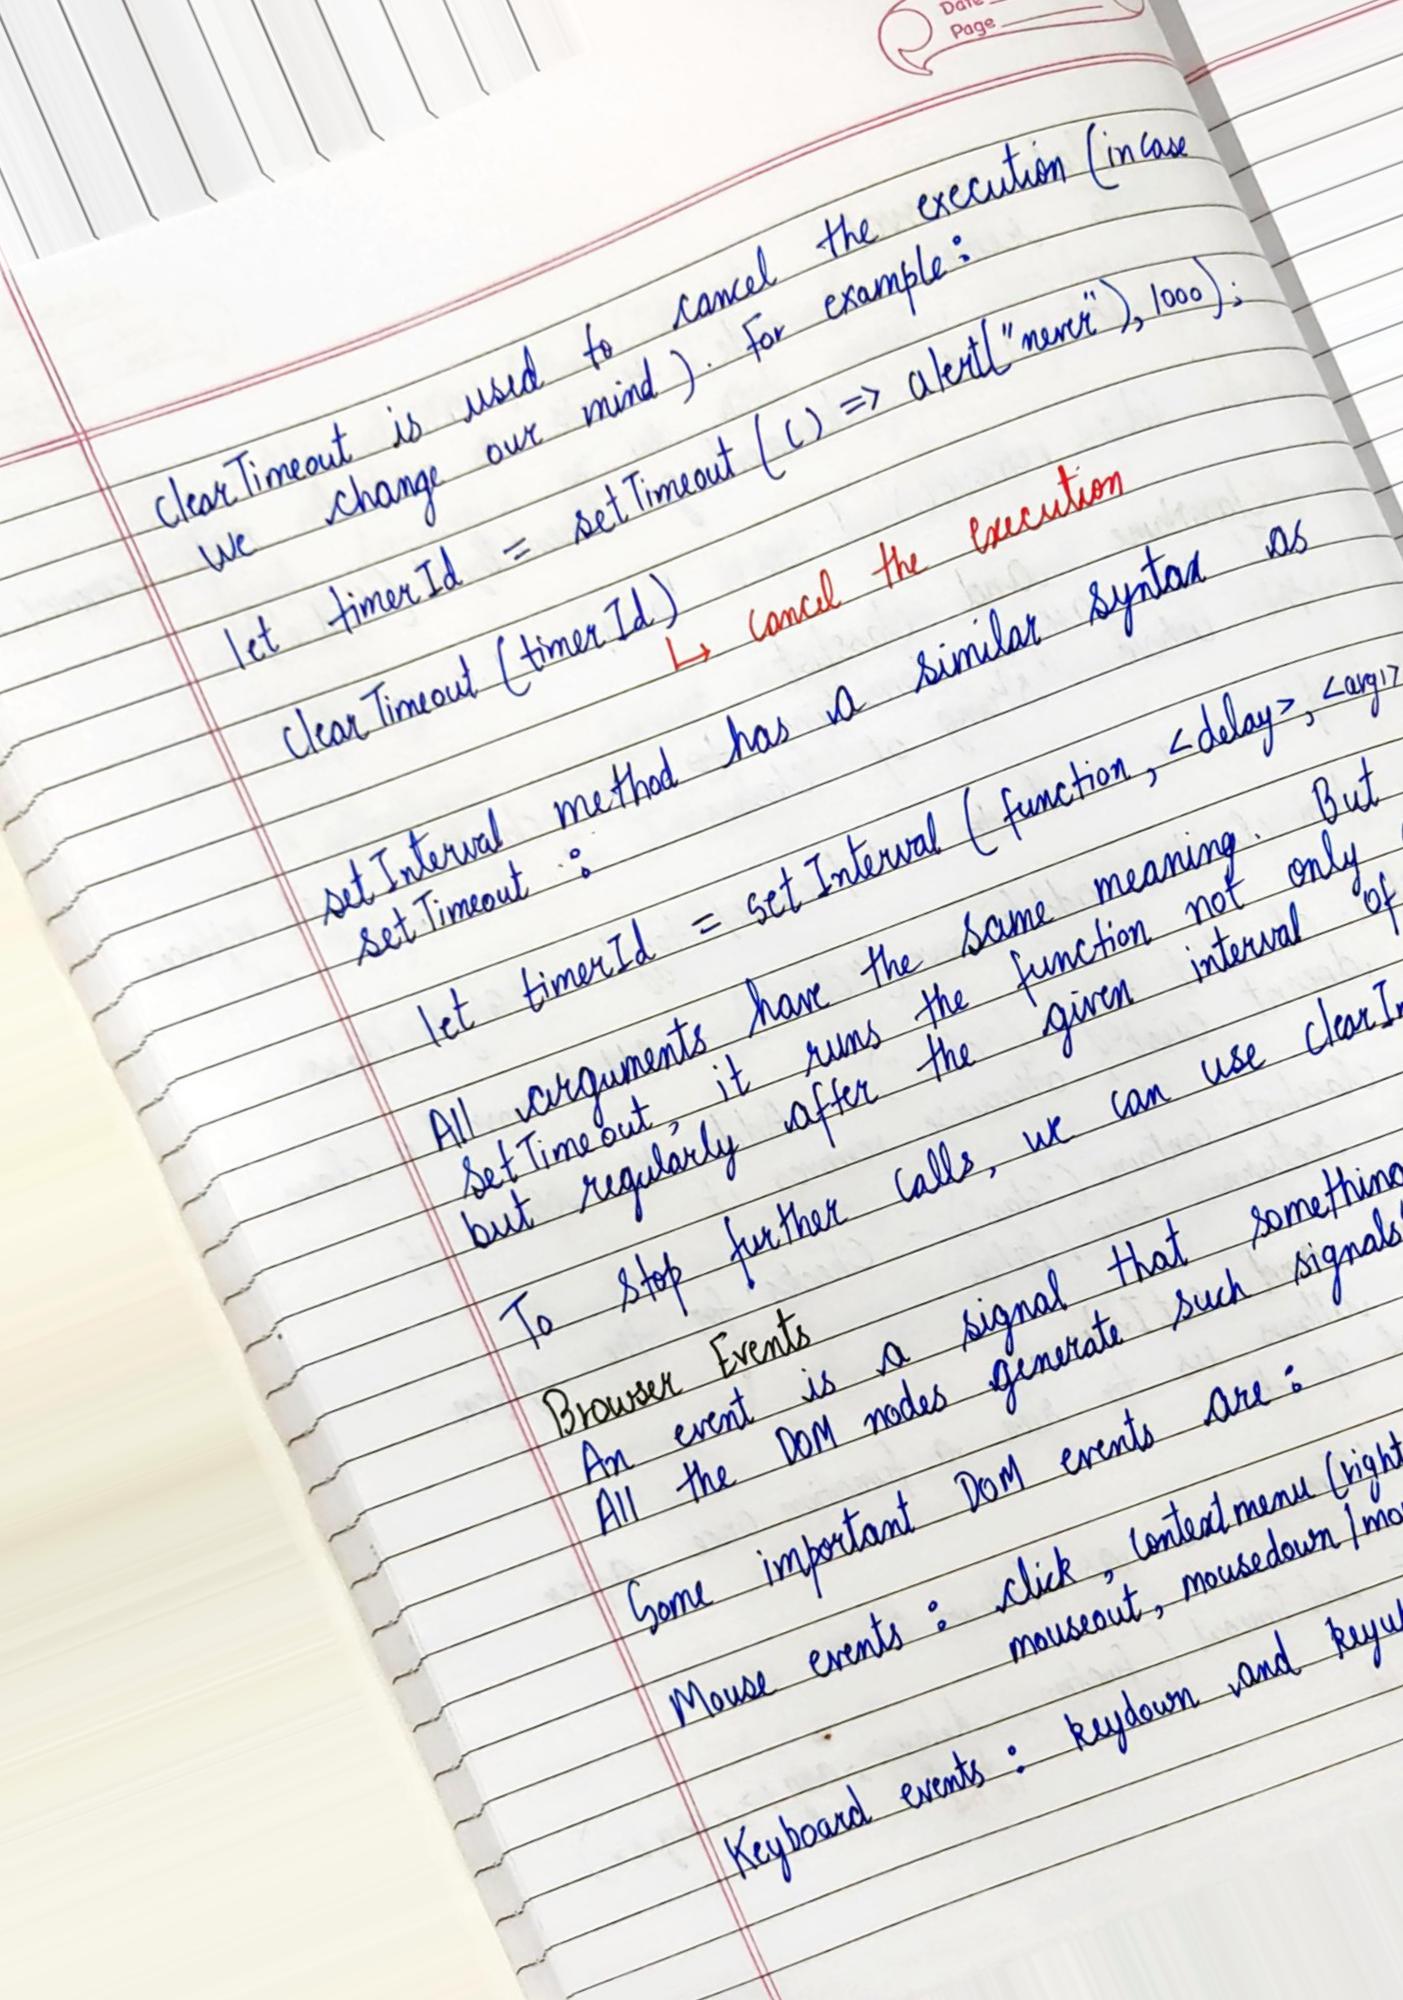 Date
Page
clearTimeout is used to cancel the execution (incase
we change our mind). For example:
let timerId = setTimeout (() => alert("never"), 1000);
clearTimeout (timerId)
↳ cancel the execution
setInterval method has a similar syntax as
setTimeout :
let timerId = setInterval ( function, <delay>, <arg1>
All arguments have the same meaning. But
setTimeout, it runs the function not only
but regularly after the given interval of
To stop further calls, we can use clearIn
Browser Events
An event is a signal that something
All the DOM nodes generate such signals
Some important DOM events are :
Mouse events : click, contextmenu (right
mouseout, mousedown/mo
Keyboard events : keydown and keyu